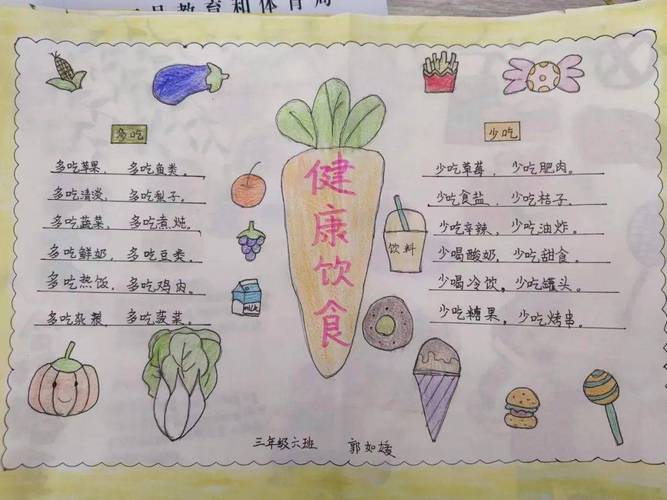 教育和体育局
多吃
多吃苹果，多吃鱼类。
多吃清淡，多吃梨子。
多吃蔬菜，多吃煮炖。
多吃鲜奶，多吃豆类。
多吃热饭，多吃鸡肉。
多吃杂粮，多吃菠菜。
milk
健康饮食
饮料
少吃
少吃草莓，少吃肥肉。
少吃食盐，少吃桔子。
少吃辛辣，少吃油炸。
少喝酸奶，少吃甜食。
少喝冷饮，少吃罐头。
少吃糖果，少吃烤串。
三年级六班 郭如媛